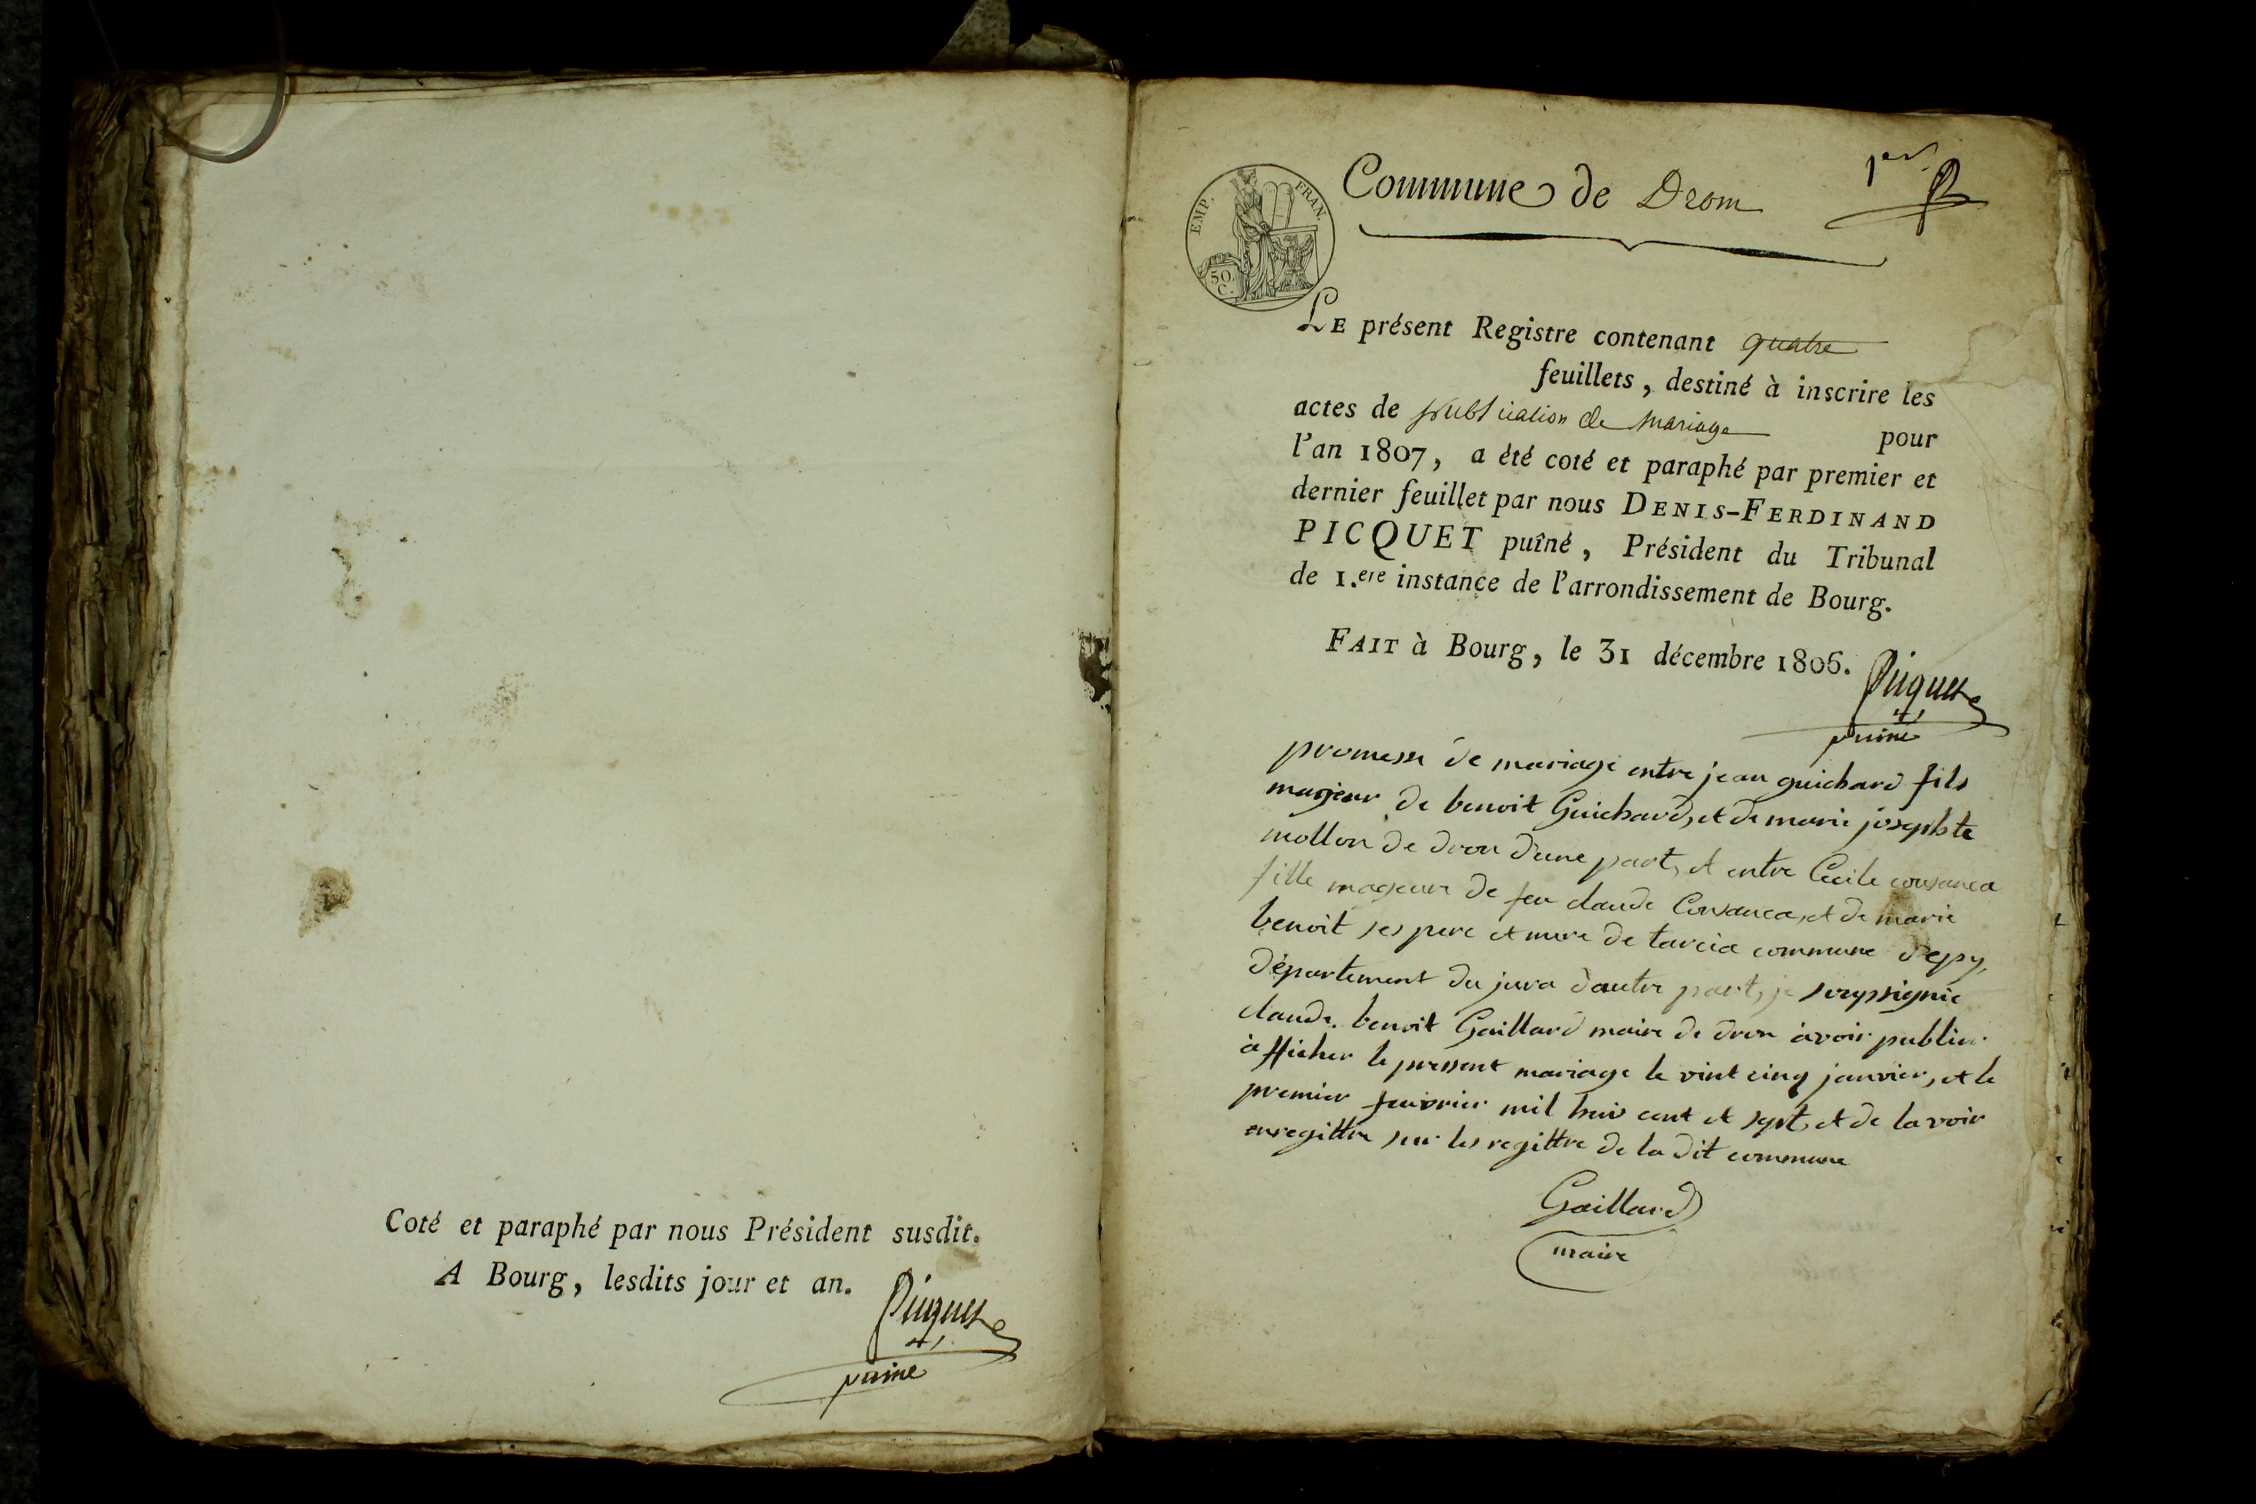 Coté et paraphé par nous Président susdit.
A Bourg, lesdits jour et an.
Picquet
puiné
1er
EMP. FRAN.
50 C.
Commune de Drom
LE présent Registre contenant quatre
feuillets, destiné à inscrire les
actes de publication de mariage pour
l'an 1807, a été coté et paraphé par premier et
dernier feuillet par nous DENIS-FERDINAND
PICQUET puîné, Président du Tribunal
de 1.ere instance de l'arrondissement de Bourg.
FAIT à Bourg, le 31 décembre 1806.
Picquet
puiné
promesse de mariage entre jean guichard fils
majeur de benoit Guichard, et de marie josephte
mollon de dron d'une part, et entre Cecile cousanca
fille mageure de feu claude Cousanca, et de marie
benoit ses pere et mere de tarcia commune d'epy,
département du jura d'autre part, je soussignie
claude benoit Gaillard maire de dron avoir publier
afficher le present mariage le vint cinq janvier, et le
premier feivrier mil huis cent et sept, et de lavoir
enregittre sur les regittre de la dit commune
Gaillard
maire